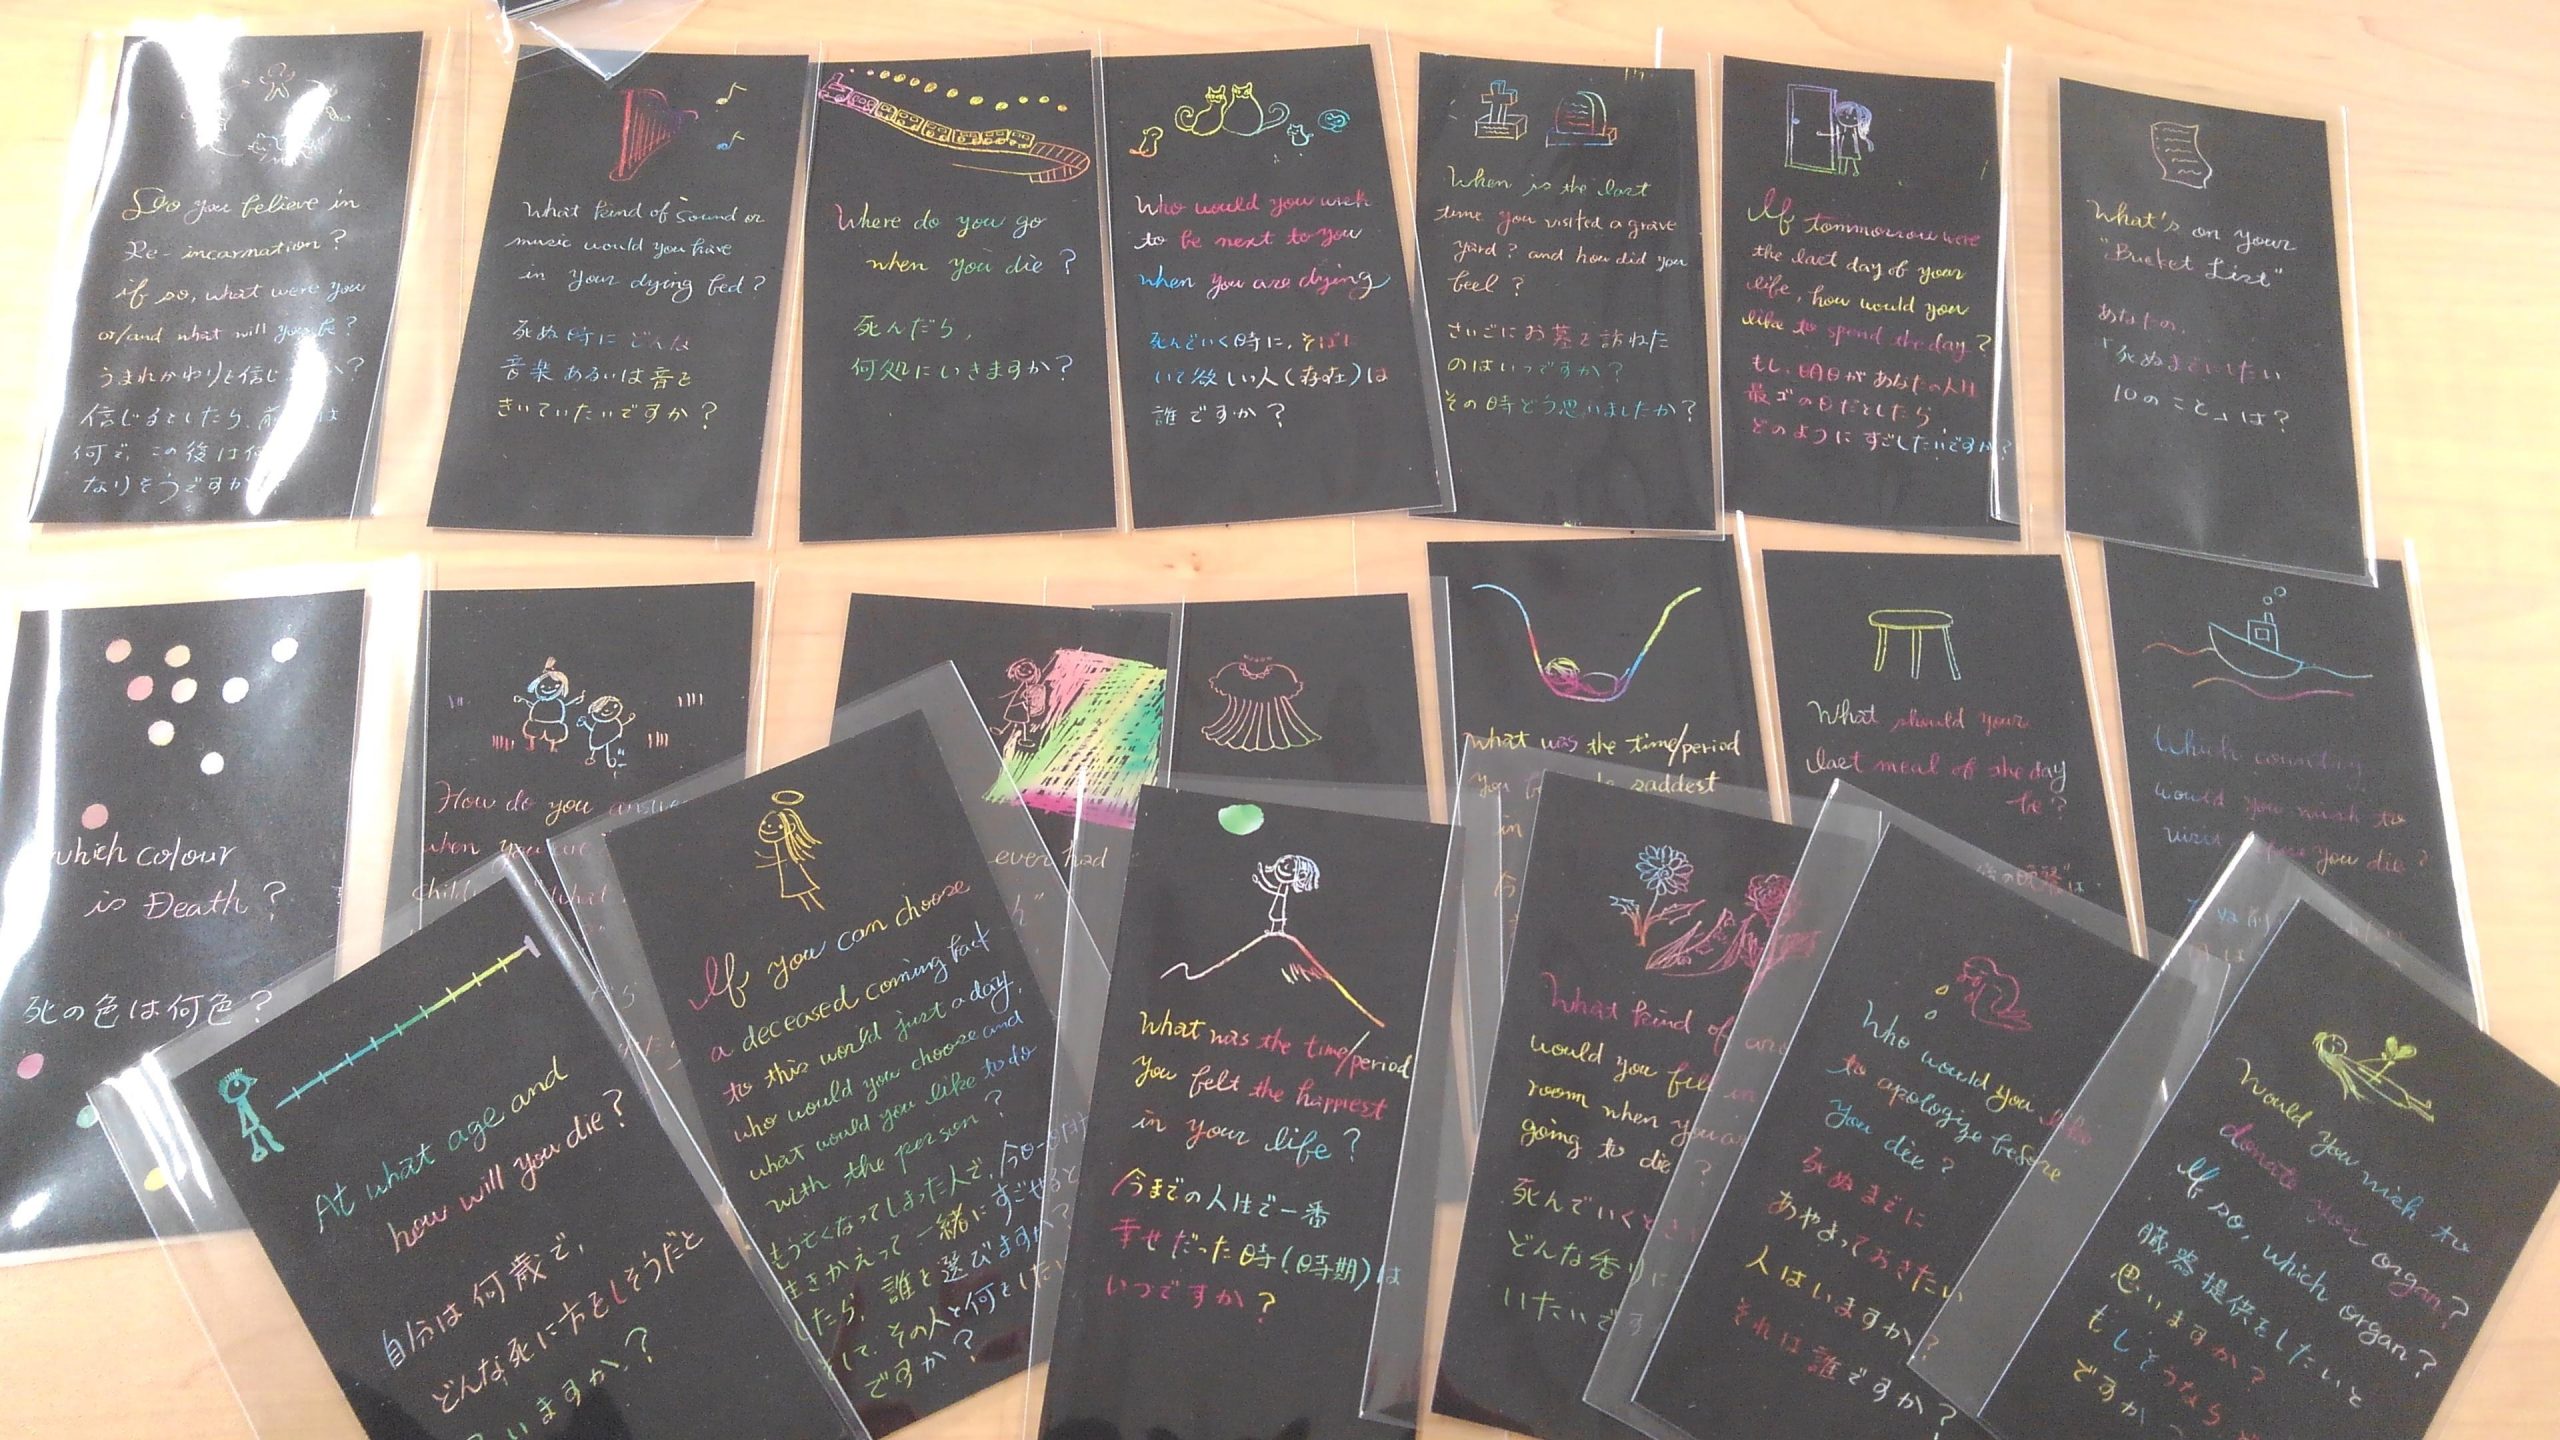 Do you believe in
Re-incarnation?
if so, what were you
or/and what will you be?
うまれかわりを信じ
信じるとしたら、前 は
何で、この後は何
なりそうですか
What kind of sound or
music would you have
in your dying bed?
死ぬ時にどんな
音楽あるいは音を
きいていたいですか？
Where do you go
when you die?
死んだら、
何処にいきますか？
Who would you wish
to be next to you
when you are dying
死んでいく時に、そばに
いて欲しい人(存在)は
誰ですか？
When is the last
time you visited a grave
yard? and how did you
feel?
さいごにお墓を訪ねた
のはいつですか？
その時どう思いましたか？
If tommorow were
the last day of your
life, how would you
like to spend the day?
もし、明日があなたの人生
最ゴの日だとしたら、
どのようにすごしたいですか？
What's on your
"Bucket List"
あなたの、
「死ぬまでにしたい
10のこと」は？
which colour
is Death?
死の色は何色？
How do you answer
when you are
child, "What
ever had
What was the time/period
you saddest
in
今
What should your
last meal of the day
be?
後の晩餐"は
Which country
would you wish to
visit before you die?
At what age and
how will you die?
自分は何歳で、
どんな死に方をしそうだと
いますか？
If you can choose
a deceased coming back
to this world just a day,
who would you choose and
what would you like to do
with the person?
もう亡くなってしまった人で、今日一日だけ
生きかえって一緒にすごせると
したら、誰を選びますか？
そして、その人と何をしたい
ですか？
What was the time/period
you felt the happiest
in your life?
今までの人生で一番
幸せだった時(時期)は
いつですか？
What kind of
would you fill in
room when you
going to die?
死んでいくとき
どんな香りに
いたいです
Who would you like
to apologize before
you die?
死ぬまでに
あやまっておきたい
人はいますか？
それは誰ですか？
Would you wish to
donate your organ?
If so, which organ?
臓器提供をしたいと
思いますか？
もしそうなら、ど
ですか